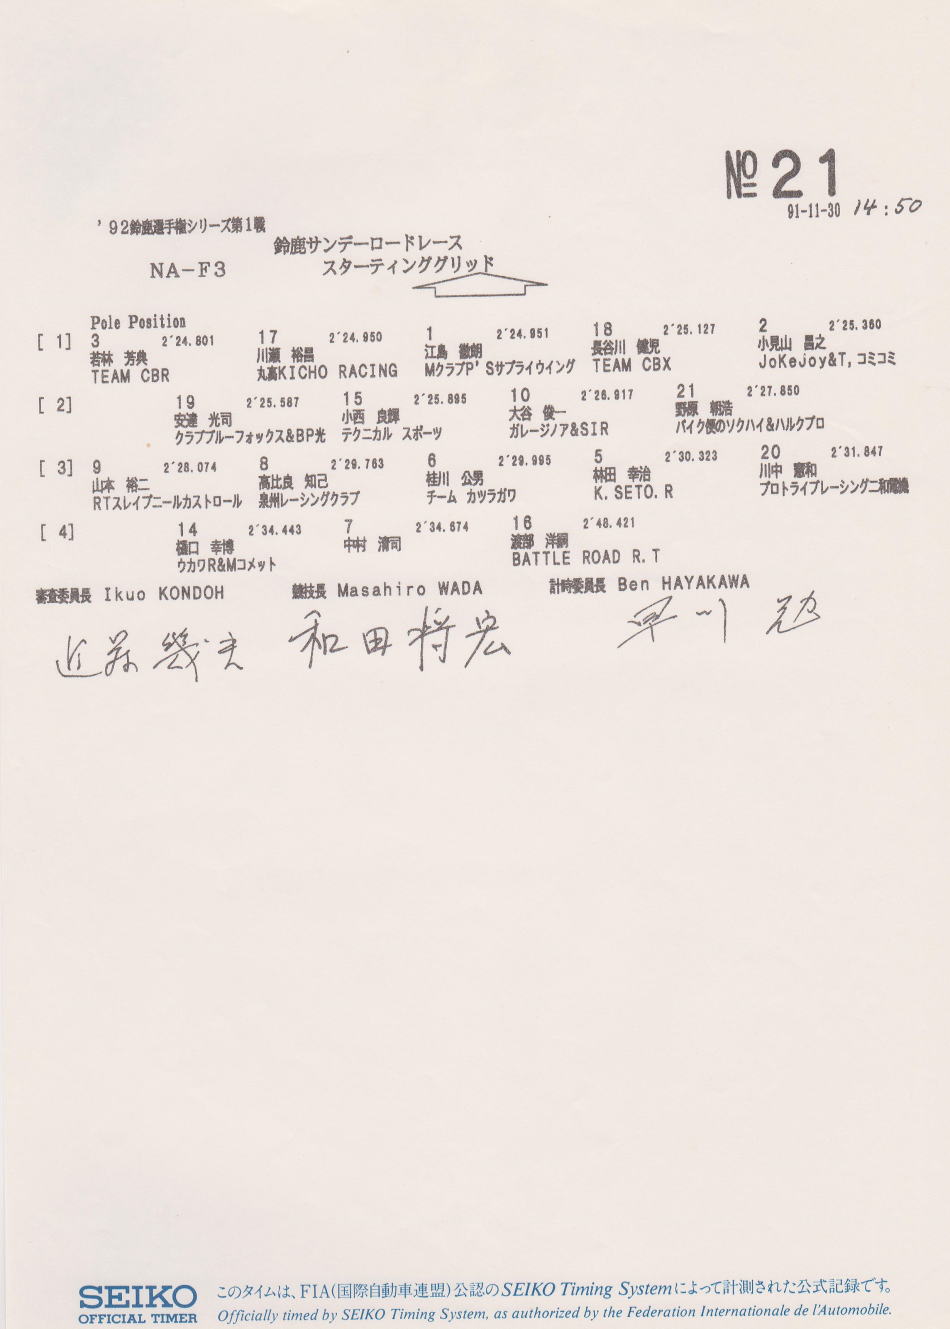 № 21
91-11-30 14:50
'92鈴鹿選手権シリーズ第1戦
鈴鹿サンデーロードレース
NA-F3 スターティンググリッド
Pole Position
[ 1] 3 2'24.801 17 2'24.950 1 2'24.951 18 2'25.127 2 2'25.360
若林 芳典 川瀬 裕昌 江島 徹朗 長谷川 健児 小見山 昌之
TEAM CBR 丸高KICHO RACING MクラブP'Sサプライウイング TEAM CBX JoKeJoy&T,コミコミ
[ 2] 19 2'25.587 15 2'25.895 10 2'26.917 21 2'27.850
安達 光司 小西 良輝 大谷 俊一 野原 朝浩
クラブブルーフォックス&BP光 テクニカル スポーツ ガレージノア&SIR バイク便のソクハイ&ハルクプロ
[ 3] 9 2'28.074 8 2'29.763 6 2'29.995 5 2'30.323 20 2'31.847
山本 裕二 高比良 知己 桂川 公男 林田 幸治 川中 憲和
RTスレイブニールカストロール 泉州レーシングクラブ チーム カツラガワ K.SETO.R プロトライブレーシング二和電機
[ 4] 14 2'34.443 7 2'34.674 16 2'48.421
樋口 幸博 中村 清司 渡部 洋嗣
ウカワR&Mコメット BATTLE ROAD R.T
審査委員長 Ikuo KONDOH 競技長 Masahiro WADA 計時委員長 Ben HAYAKAWA
近藤 幾夫 和田将宏 早川 勉
SEIKO このタイムは、FIA(国際自動車連盟)公認のSEIKO Timing Systemによって計測された公式記録です。
OFFICIAL TIMER Officially timed by SEIKO Timing System, as authorized by the Federation Internationale de l'Automobile.